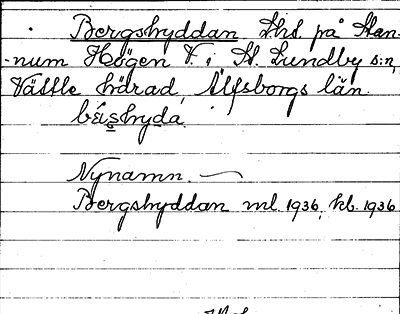 Bergshyddan Lht. på Stan-
-num Högen V. i St. Lundby s:n,
Vättle härad, Älfsborgs län.
Nynamn. —
Bergshyddan ml. 1936, kb. 1936